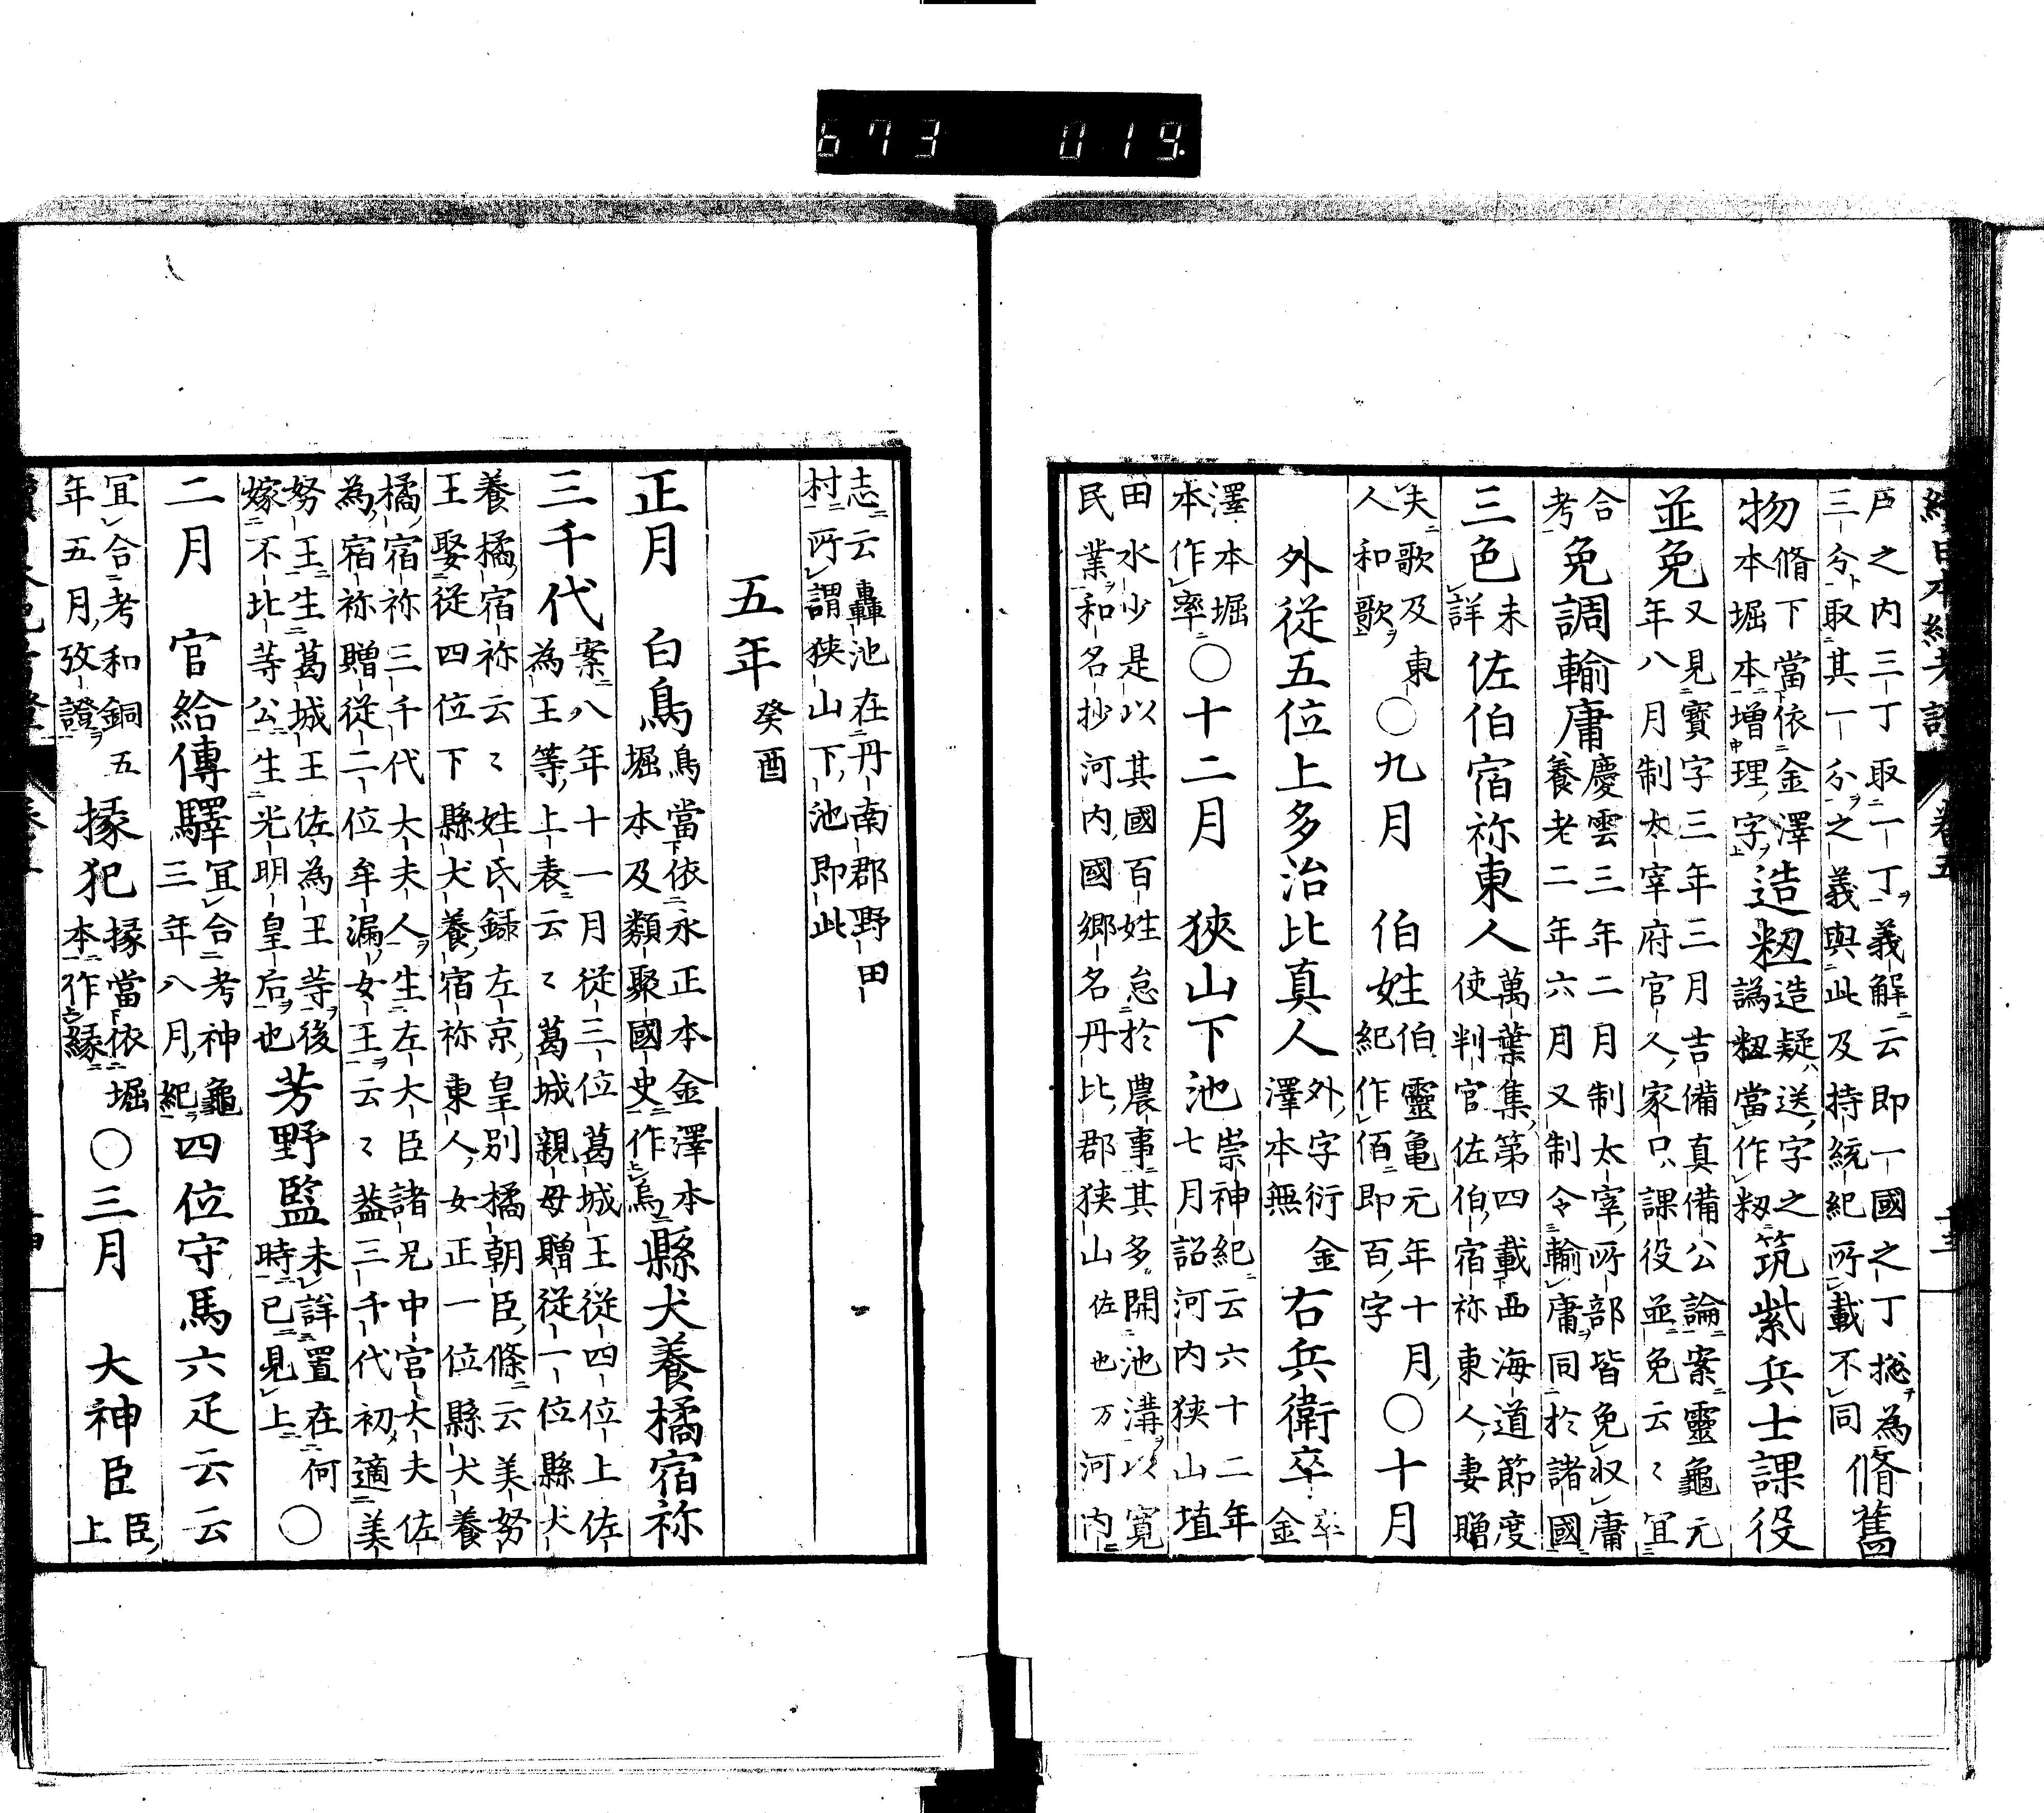 673 019.
續日本紀考證 卷五
戸之内三丁取二丁ヲ義解云即一國之丁捴ヲ為
三分取其一分ヲ之義與此及持統紀所載不同
脩舊
物
脩下當依金澤
本堀本増理字
造籾
造疑送字之
譌籾當作籾
筑紫兵士課役
並免
又見寳字三年三月吉備真備公論案靈龜元
年八月制太宰府官人家只課役並免云々宜
合
考
免調輸庸
慶雲三年二月制太宰所部皆免收庸
養老二年六月又制令輸庸ヲ同於諸國
三色
未
詳
佐伯宿祢東人
萬葉集第四載西海道節度
使判官佐伯宿祢東人妻贈
夫歌及東
人和歌ヲ
○九月
伯姓
伯靈亀元年十月
紀作佰即百字
○十月
外従五位上多治比真人
外字衍金
澤本無
右兵衛卒
卒金
澤本堀
本作率
○十二月
狹山下池
崇神紀云六十二年
七月詔河内狹山埴
田水少是以其國百姓怠於農事其多開池溝ヲ以寛
民業ヲ和名抄河内國郷名丹比郡狹山佐也万河内
志云轟池在丹南郡野田
村所謂狹山下池即此
五年
癸酉
正月
白鳥
鳥當依永正本金澤本
堀本及類聚國史作烏
縣犬養橘宿祢
三千代
案八年十一月従三位葛城王従四位上佐
為王等上表云々葛城親母贈従一位縣犬
養橘宿祢云々姓氏録左京皇別橘朝臣條云美努
王娶従四位下縣犬養宿祢東人女正一位縣犬養
橘宿祢三千代大夫人ヲ生左大臣諸兄中宮大夫佐
為宿祢贈従二位牟漏女王ヲ云々葢三千代初適美
努王生葛城王佐為王等ヲ後
嫁不比等公生光明皇后ヲ也
芳野監
未詳置在何
時已見上
○
二月
官給傳驛
宜合考神龜
三年八月紀ヲ
四位守馬六疋云云
宜合考和銅五
年五月攷證ヲ
掾犯
掾當依堀
本作縁
○三月
大神臣
臣
上